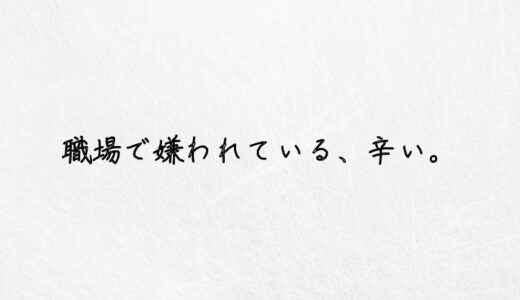 職場で嫌われている、辛い。